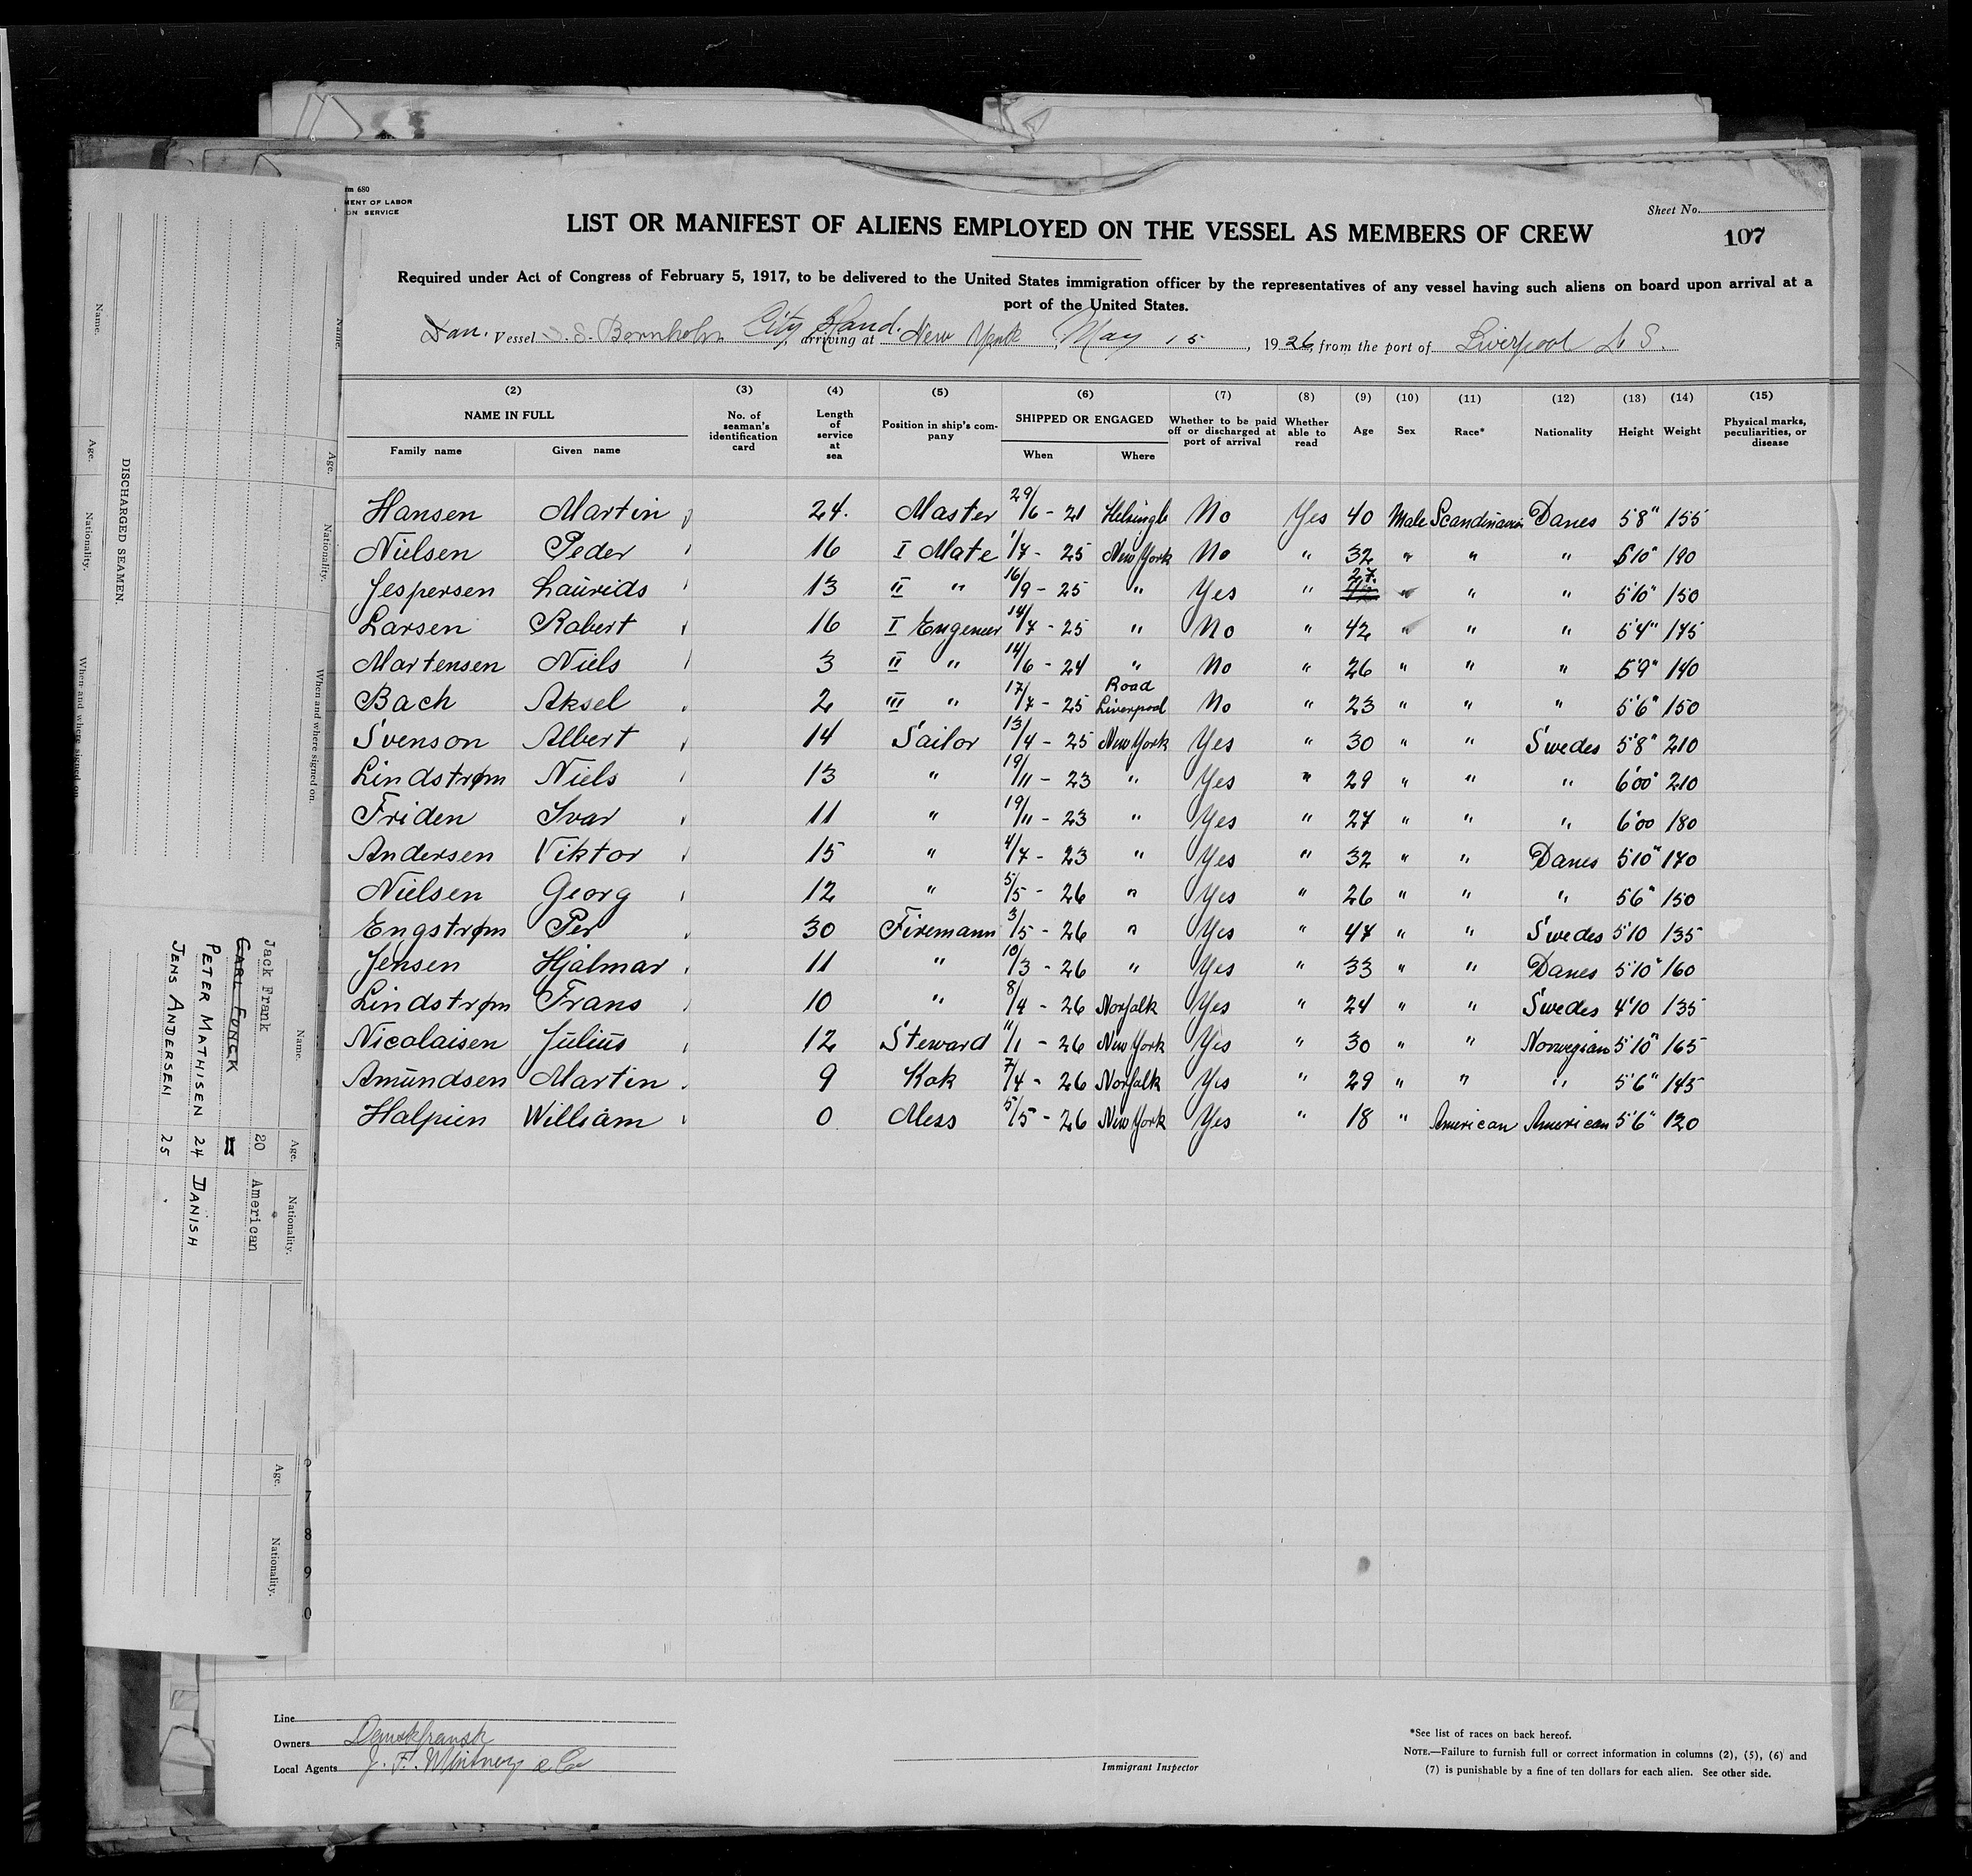 rm 680
MENT OF LABOR
ON SERVICE
Sheet No.
LIST OR MANIFEST OF ALIENS EMPLOYED ON THE VESSEL AS MEMBERS OF CREW
107
Required under Act of Congress of February 5, 1917, to be delivered to the United States immigration officer by the representatives of any vessel having such aliens on board upon arrival at a
port of the United States.
Dan. Vessel S.S. Bornholm City Island. arriving at New York May 15, 1926, from the port of Liverpool
(2) (3) (4) (5) (6) (7) (8) (9) (10) (11) (12) (13) (14) (15)
NAME IN FULL
Family name Given name
No. of seaman's identification card
Length of service at sea
Position in ship's company
SHIPPED OR ENGAGED
When Where
Whether to be paid off or discharged at port of arrival
Whether able to read
Age
Sex
Race*
Nationality
Height
Weight
Physical marks, peculiarities, or disease
Hansen Martin 24. Master 29/6 - 21 No Yes 40 Male Scandinavien Danes 5'8" 155
Nielsen Peder 16 I Mate 1/7 - 25 New York No " 32 " " " 5'10" 190
Jespersen Laurids 13 II " 16/9 - 25 " Yes " 27. " " " 5'10" 150
Larsen Robert 16 I Engeneer 14/7 - 25 " No " 42 " " " 5'4" 175
Martensen Niels 3 II " 14/6 - 24 " No " 26 " " " 5'9" 140
Bach Aksel 2 III " 17/7 - 25 Road Liverpool No " 23 " " " 5'6" 150
Svenson Albert 14 Sailor 13/4 - 25 New York Yes " 30 " " Swedes 5'8" 210
Lindstrøm Niels 13 " 19/11 - 23 " Yes " 29 " " " 6'00" 210
Friden Ivar 11 " 19/11 - 23 " Yes " 27 " " " 6'00 180
Andersen Viktor 15 " 4/7 - 23 " Yes " 32 " " Danes 5'10" 170
Nielsen Georg 12 " 5/5 - 26 " Yes " 26 " " " 5'6" 150
Engstrøm Per 30 Firemann 3/5 - 26 " Yes " 47 " " Swedes 5'10 135
Jensen Hjalmar 11 " 10/3 - 26 " Yes " 33 " " Danes 5'10" 160
Lindstrøm Frans 10 " 8/4 - 26 Norfalk Yes " 24 " " Swedes 4'10 135
Nicolaisen Julius 12 Steward 11/1 - 26 New York Yes " 30 " " Norwegian 5'10" 165
Amundsen Martin 9 Kok 7/4 - 26 Norfalk Yes " 29 " " " 5'6" 145
Halpien William 0 Mess 5/5 - 26 New York Yes " 18 " American American 5'6" 120
Line
Owners Danskfransk
Local Agents J. F. Whitney & Co
Immigrant Inspector
*See list of races on back hereof.
NOTE.—Failure to furnish full or correct information in columns (2), (5), (6) and
(7) is punishable by a fine of ten dollars for each alien. See other side.
Name. Age. Nationality. When and where signed on.
DISCHARGED SEAMEN.
Name. Age. Nationality. When and where signed on.
Name. Age. Nationality.
Jack Frank 20 American
CARL FUNCK
PETER MATHISEN 24 DANISH
JENS ANDERSEN 25 "
Name. Age. Nationality.
7
8
9
0